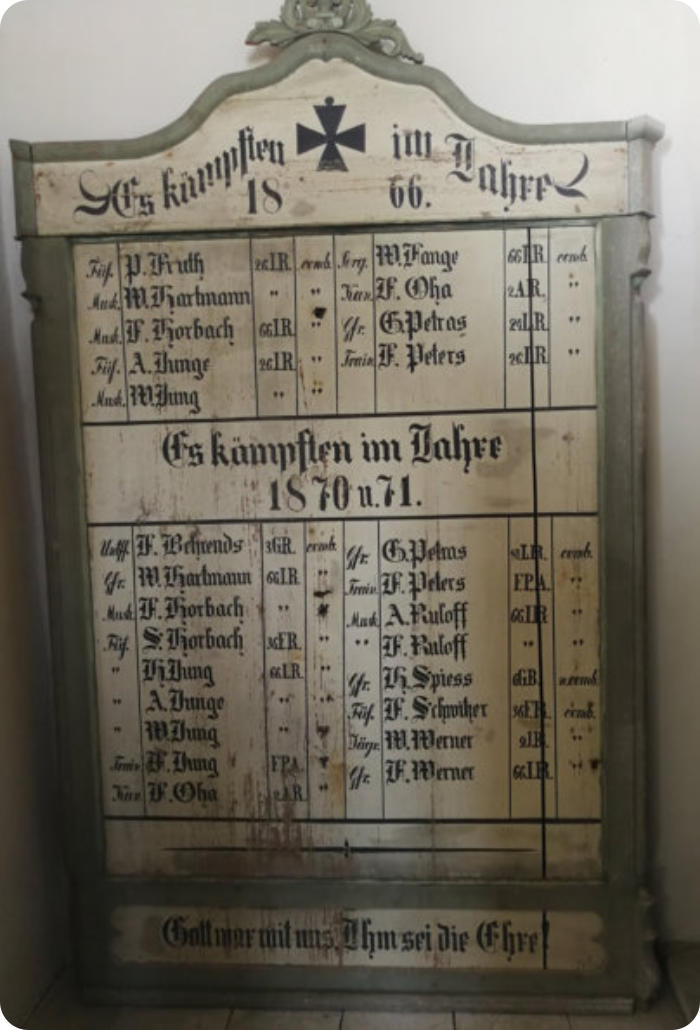 Es kämpften im Jahre
18 66.
Füs. P. Fruth 26 I.R. comb. Serg. W. Fange 66 I.R. comb.
Musk. W. Hartmann " " Kan. F. Oha 2 A.R. "
Musk. F. Horbach 66 I.R. " Gfr. G. Petras 26 I.R. "
Füs. A. Junge 26 I.R. " Train. F. Peters 26 I.R. "
Musk. W. Jung " "
Es kämpften im Jahre
1870 u. 71.
Untff. F. Behrends 3 G.R. comb. Gfr. G. Petras I.R. comb.
Gfr. W. Hartmann 66 I.R. " Train. F. Peters F.P.A. "
Musk. F. Horbach " " Musk. A. Ruloff 66 I.R. "
Füs. S. Horbach 36 F.R. " " F. Ruloff " "
" H. Jung 66 I.R. " Gfr. H. Spiess 6 G.B. n. comb.
" A. Junge " Füs. F. Schwiker 36 F.R. comb.
" W. Jung " Jäger. W. Werner J.B. "
Train. F. Jung F.P.A. " Gfr. F. Werner 66 I.R. "
Kan. F. Oha 2 A.R. "
Gott war mit uns, Ihm sei die Ehre!